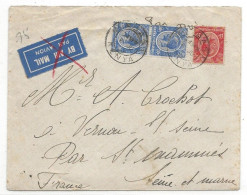 BY AIR MAIL
PAR AVION
Mr A. Crochot
à Vernou s/ Seine
Par St Mammès
France Seine et Marne